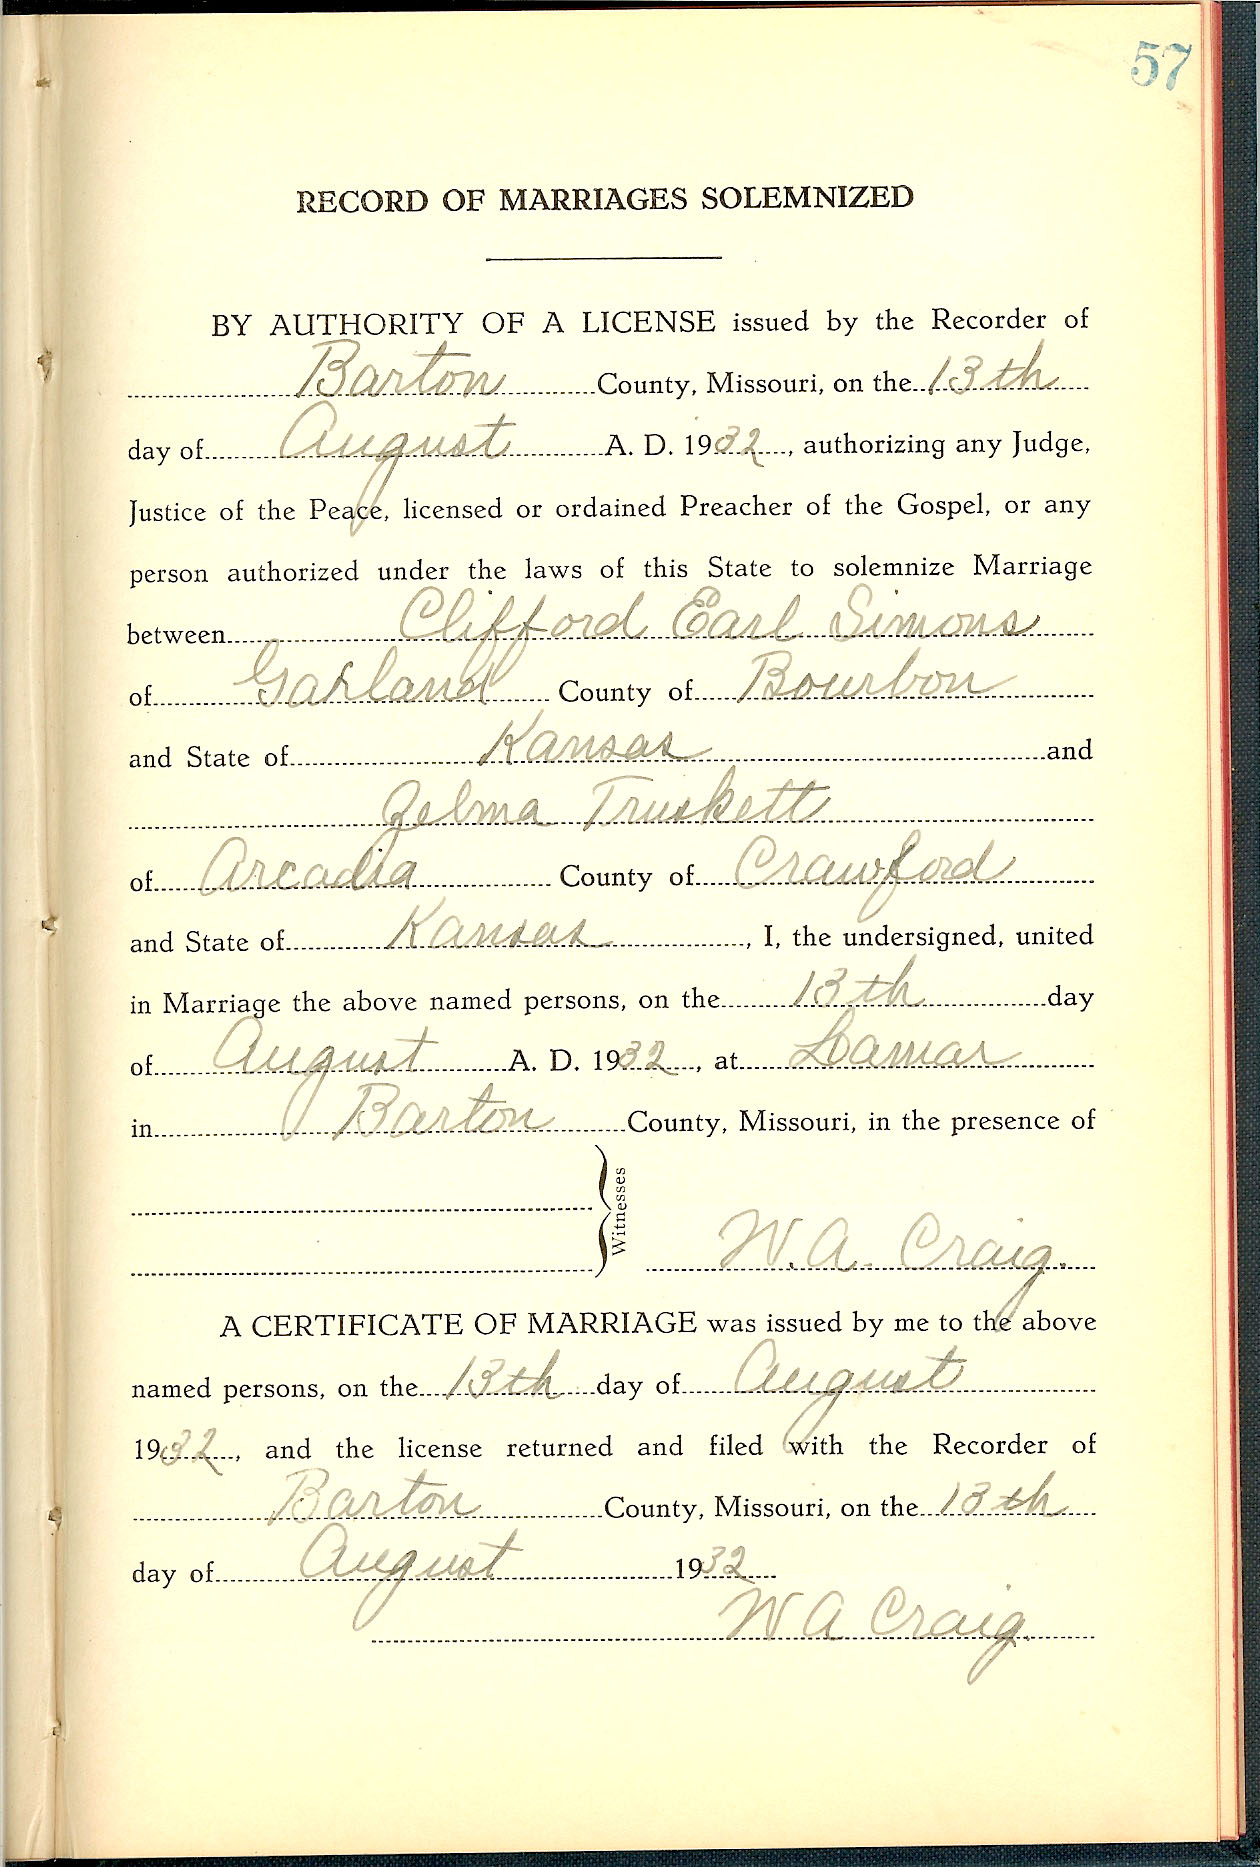 57
RECORD OF MARRIAGES SOLEMNIZED
BY AUTHORITY OF A LICENSE issued by the Recorder of
Barton County, Missouri, on the 13th
day of August A. D. 1932, authorizing any Judge,
Justice of the Peace, licensed or ordained Preacher of the Gospel, or any
person authorized under the laws of this State to solemnize Marriage
between Clifford Earl Simons
of Garland County of Bourbon
and State of Kansas and
Zelma Truskett
of Arcadia County of Crawford
and State of Kansas, I, the undersigned, united
in Marriage the above named persons, on the 13th day
of August A. D. 1932, at Lamar
in Barton County, Missouri, in the presence of
Witnesses
W. A. Craig.
A CERTIFICATE OF MARRIAGE was issued by me to the above
named persons, on the 13th day of August
1932, and the license returned and filed with the Recorder of
Barton County, Missouri, on the 13th
day of August 1932
W A Craig.